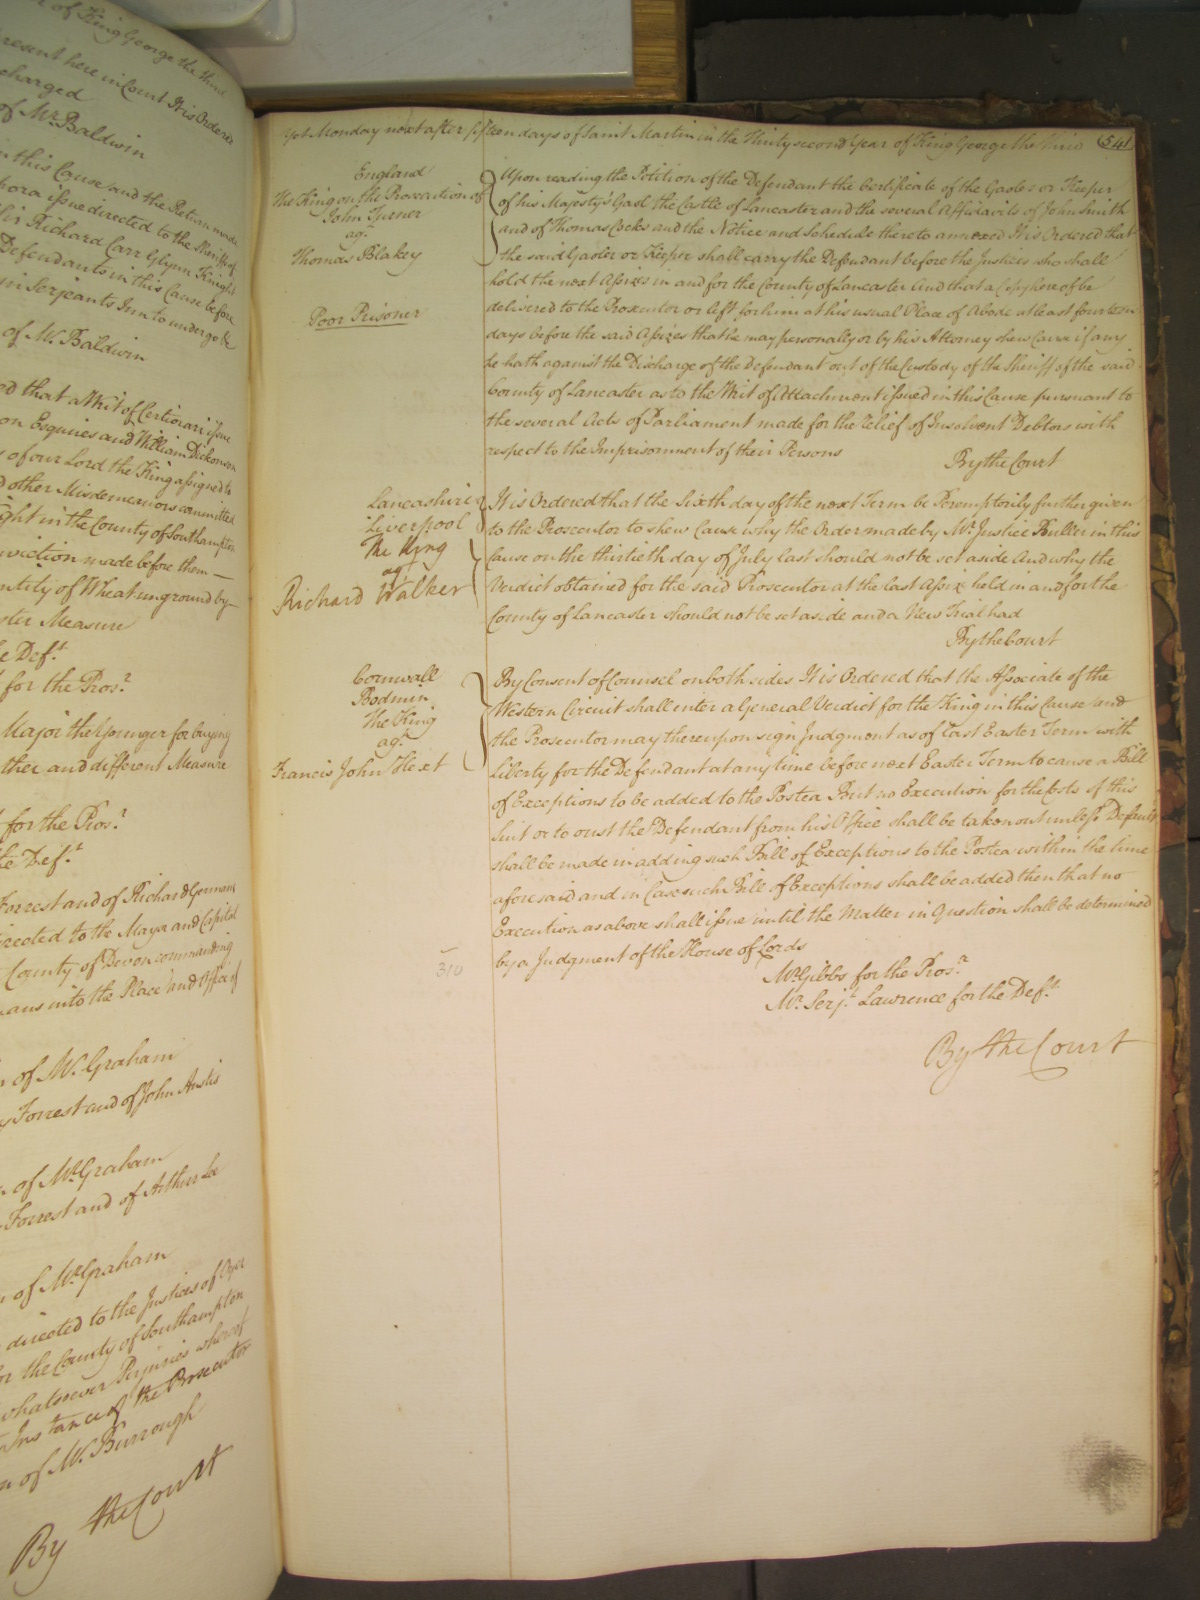 of King George the third
present here in Court It is Ordered
charged
of Mr. Baldwin
in this Cause and the Return made
issue directed to the Sheriff of
Sir Richard Carr Glynn Knight
Defendants in this Cause before
Serjeants Inn to undergo &c
of Mr. Baldwin
that a Writ of Certiorari issue
Esquires and William Dickonson
of our Lord the King assigned to
other Misdemeanors committed
in the County of Southampton
conviction made before them
Quantity of Wheat unground by
Measure
Deft.
for the Prosr.
Major the Younger for buying
other and different Measure
for the Prosr.
the Deft.
Forrest and of Richard German
directed to the Mayor and Capital
County of Devon commanding
into the Place and Office of
of Mr. Graham
Forrest and of John Austis
of Mr. Graham
Forrest and of Arthur Lee
of Mr. Graham
directed to the Justices of Oyer
for the County of Southampton
whatsoever Perjuries whereof
Instance of the Prosecutor
of Mr. Burrough
By the Court
Yet Monday next after fifteen days of Saint Martin in the Thirty second Year of King George the Third 541
England
The King on the Prosecution of
John Turner
agt.
Thomas Blakey
Poor Prisoner
Upon reading the Petition of the Defendant the Certificate of the Gaoler or Keeper
of his Majesty's Gaol the Castle of Lancaster and the several Affidavits of John Smith
and of Thomas Cocks and the Notice and Schedule thereto annexed It is Ordered that
the said Gaoler or Keeper shall carry the Defendant before the Justices who shall
hold the next Assizes in and for the County of Lancaster And that a Copy hereof be
delivered to the Prosecutor or left for him at his usual Place of Abode at least fourteen
days before the said Assizes that he may personally or by his Attorney shew Cause if any
he hath against the Discharge of the Defendant out of the Custody of the Sheriff of the said
County of Lancaster as to the Writ of Attachment issued in this Cause pursuant to
the several Acts of Parliament made for the Relief of Insolvent Debtors with
respect to the Imprisonment of their Persons
By the Court
Lancashire
Liverpool
The King
agt.
Richard Walker
It is Ordered that the Sixth day of the next Term be Peremptorily further given
to the Prosecutor to shew Cause why the Order made by Mr. Justice Buller in this
Cause on the thirtieth day of July last should not be set aside And why the
Verdict obtained for the said Prosecutor at the last Assizes held in and for the
County of Lancaster should not be set aside and a New Trial had
By the Court
Cornwall
Bodmin
The King
agt.
Francis John Hext
By Consent of Counsel on both sides It is Ordered that the Associate of the
Western Circuit shall enter a General Verdict for the King in this Cause and
the Prosecutor may thereupon sign Judgment as of last Easter Term with
Liberty for the Defendant at any time before next Easter Term to cause a Bill
of Exceptions to be added to the Postea But no Execution for the Costs of this
Suit or to oust the Defendant from his Office shall be taken out unless Default
shall be made in adding such Bill of Exceptions to the Postea within the time
aforesaid and in Case such Bill of Exceptions shall be added then that no
Execution as above shall issue until the Matter in Question shall be determined
by a Judgment of the House of Lords
310
Mr. Gibbs for the Prosr.
Mr. Serjt. Lawrence for the Deft.
By the Court